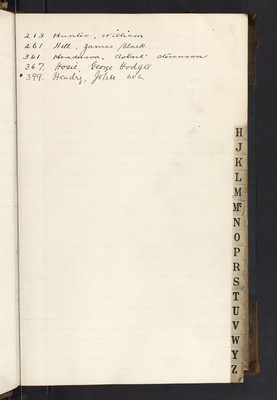 213 Hunter, William
261 Hill, James Black
361 Henderson, Robert Stevenson
367. Hosie, George Hodges
399. Hendry, John
H
J
K
L
M
Mc
N
O
P
R
S
T
U
V
W
Y
Z